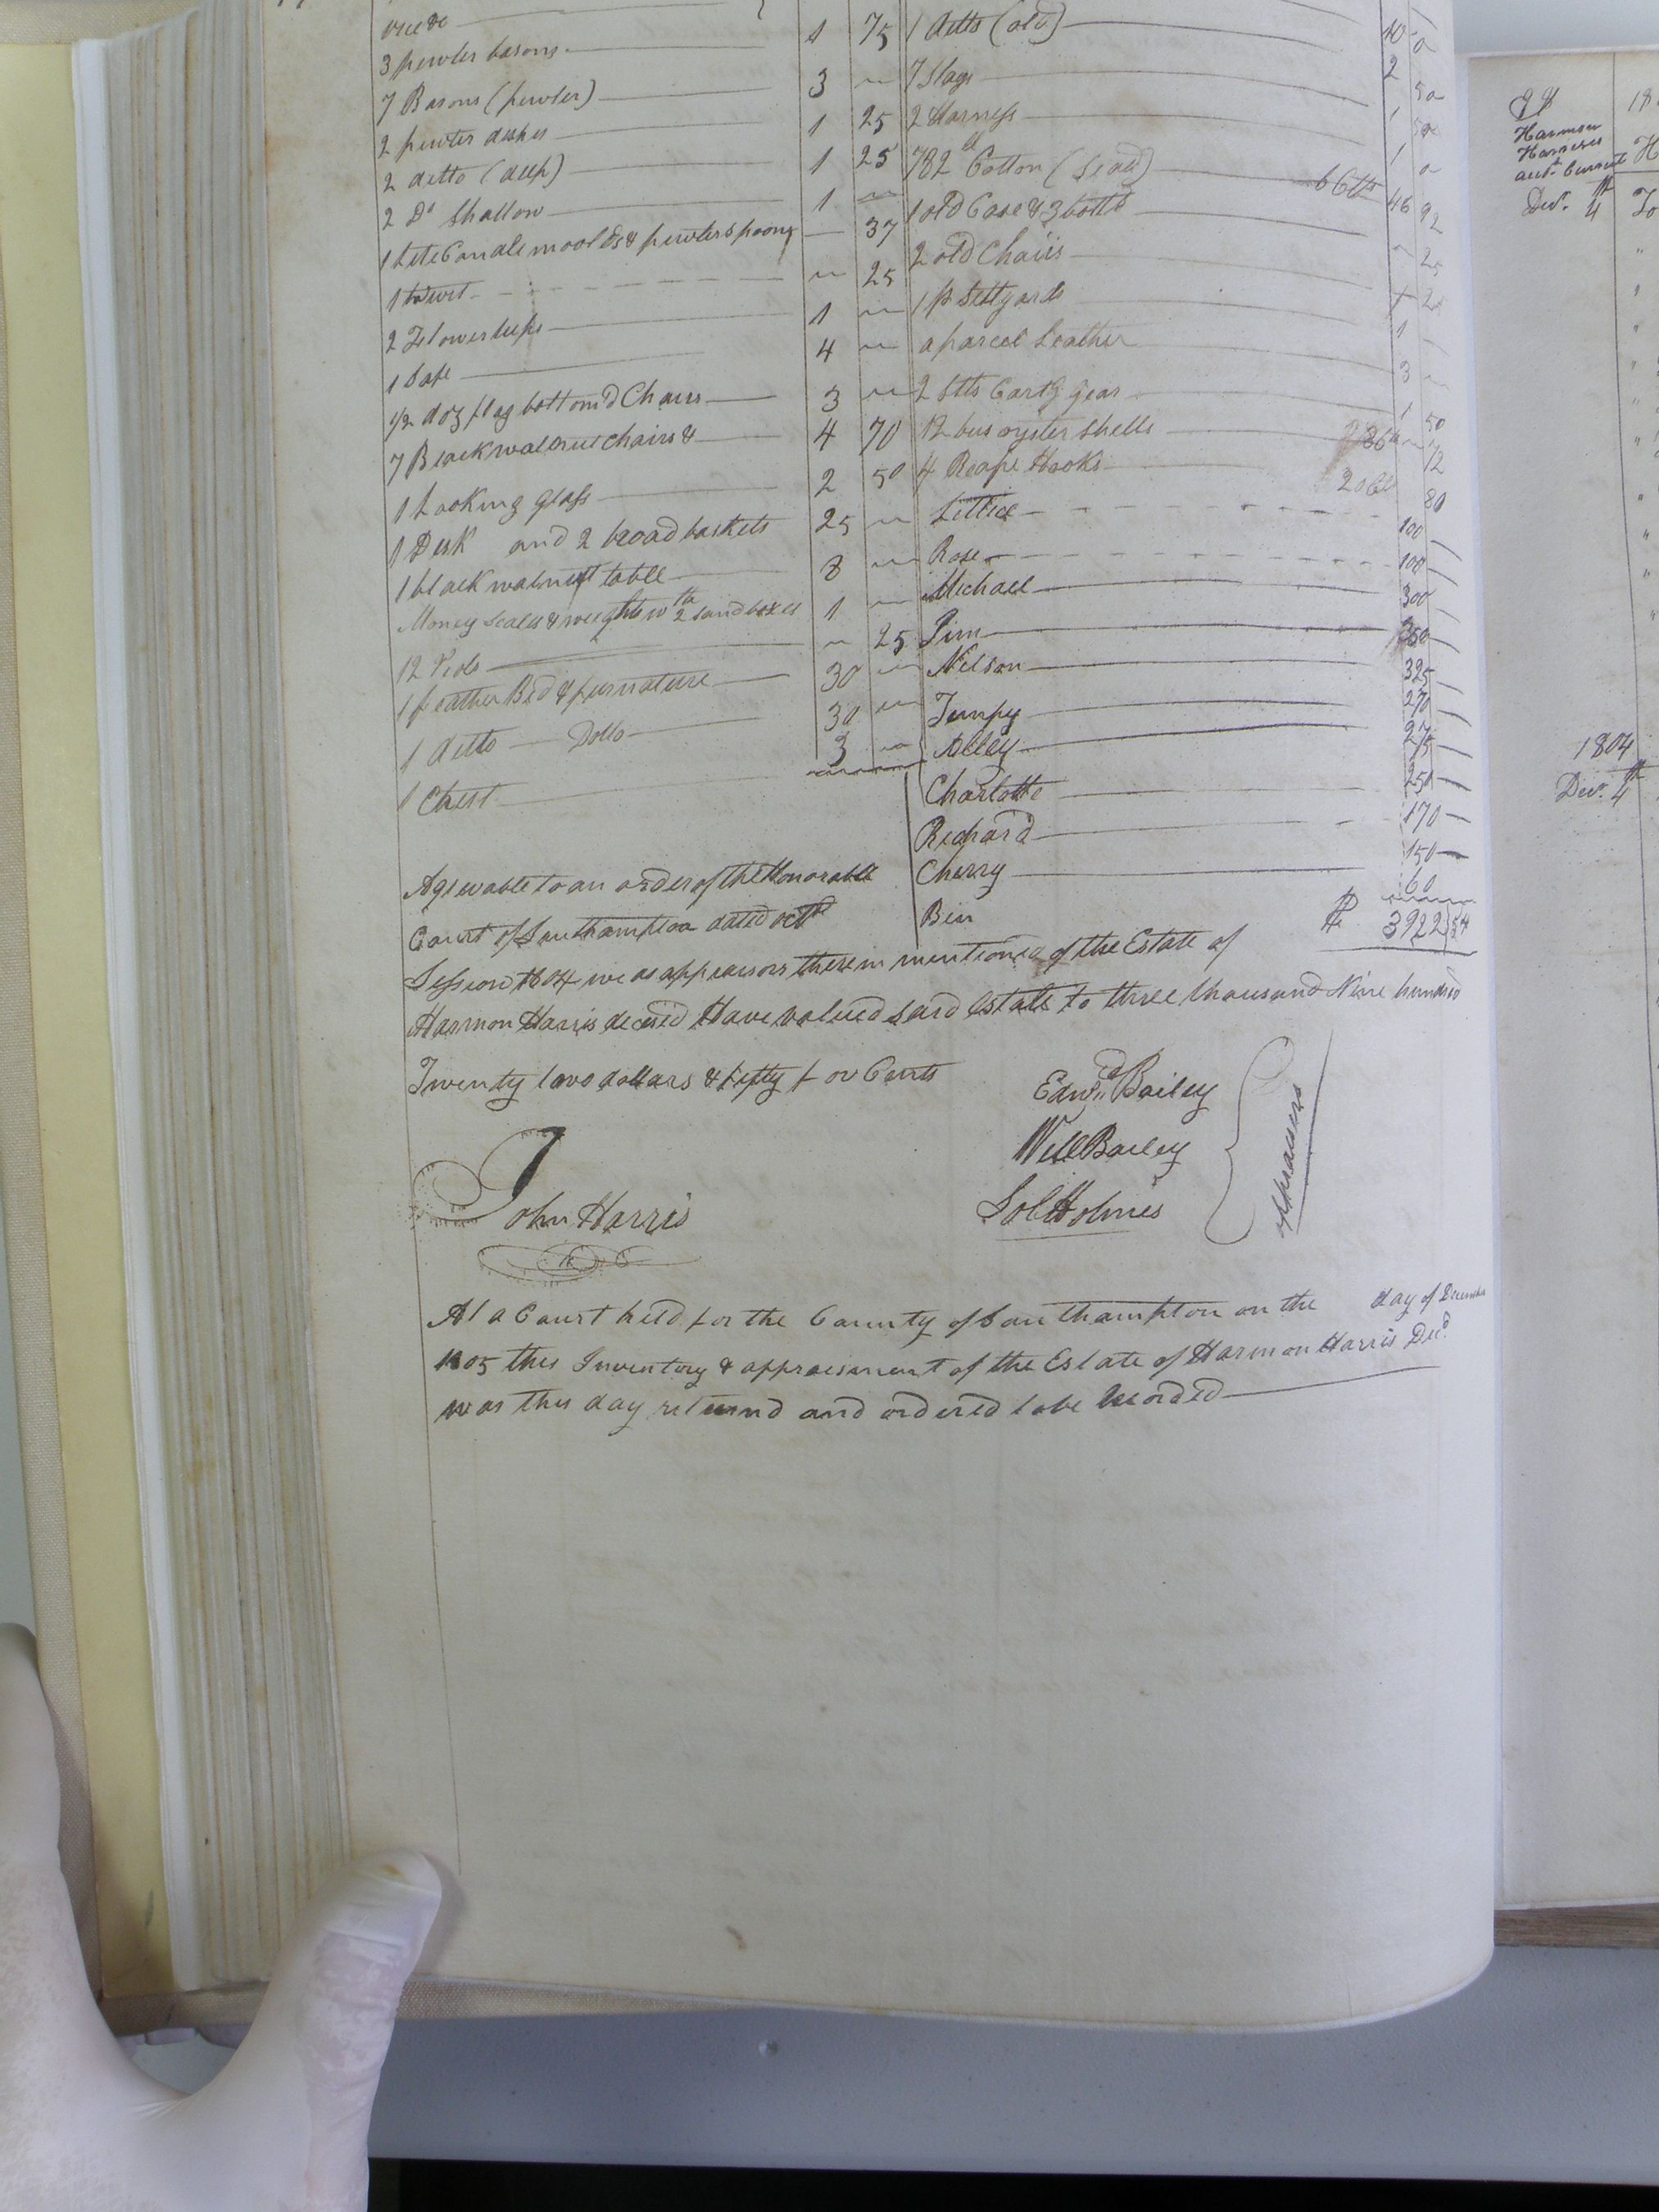 3 pewter basons 1 75
7 Basons (pewter) 3 "
2 pewter dishes 1 25
2 ditto (deep) 1 25
2 Do Shallow 1 "
1 Sett Candle moolds & pewter spoons 37
25
2 Flower 1 "
1 Safe 4 "
1/2 doz flag bottom'd Chairs 3 "
7 Black walnut chairs & 4 70
1 Looking glass 2 50
1 Desk and 2 broad baskets 25 "
1 black walnutt table 8 "
Money scales & weights wth 2 sand boxes 1 "
12 Viols " 25
1 feather Bed & furnature 30 "
1 ditto Ditto 30 "
1 Chest 3 "
1 ditto (old)
7 Slays
2 Harness
782 lb Cotton (Seed) 6 Cts 46 92
1 old Case & 3 bottls 25
2 old Chairs
a parcel Leather
2 Setts Cartg gear
12 bus oyster shells
4 Reape Hooks 20 Cts 80
Lettice 100
Rose 100
Michael 300
Pim
Nelson 325
Tempy 270
Abby
Charlotte 250
Richard 170
Cherry 150
Ben 60
$ 3922 54
Agreeable to an order of the Honorable
Court of Southampton dated octr
Session 1804 we as appraisors therein mentioned of the Estate of
Harmon Harris deceas'd Have valued said Estate to three thousand Nine hundred
Twenty two dollars & fifty for Cents
Edwd. Bailey
Will Bailey
Sol Holmes
appraisers
John Harris
At a Court held for the County of Southampton on the day of December
1805 this Inventory & appraisment of the Estate of Harmon Harris Decd.
was this day returnd and ordered to be Recorded
98
Harmon
Harrises
acct. Currant
Decr. 4th To
1804
Decr. 4th